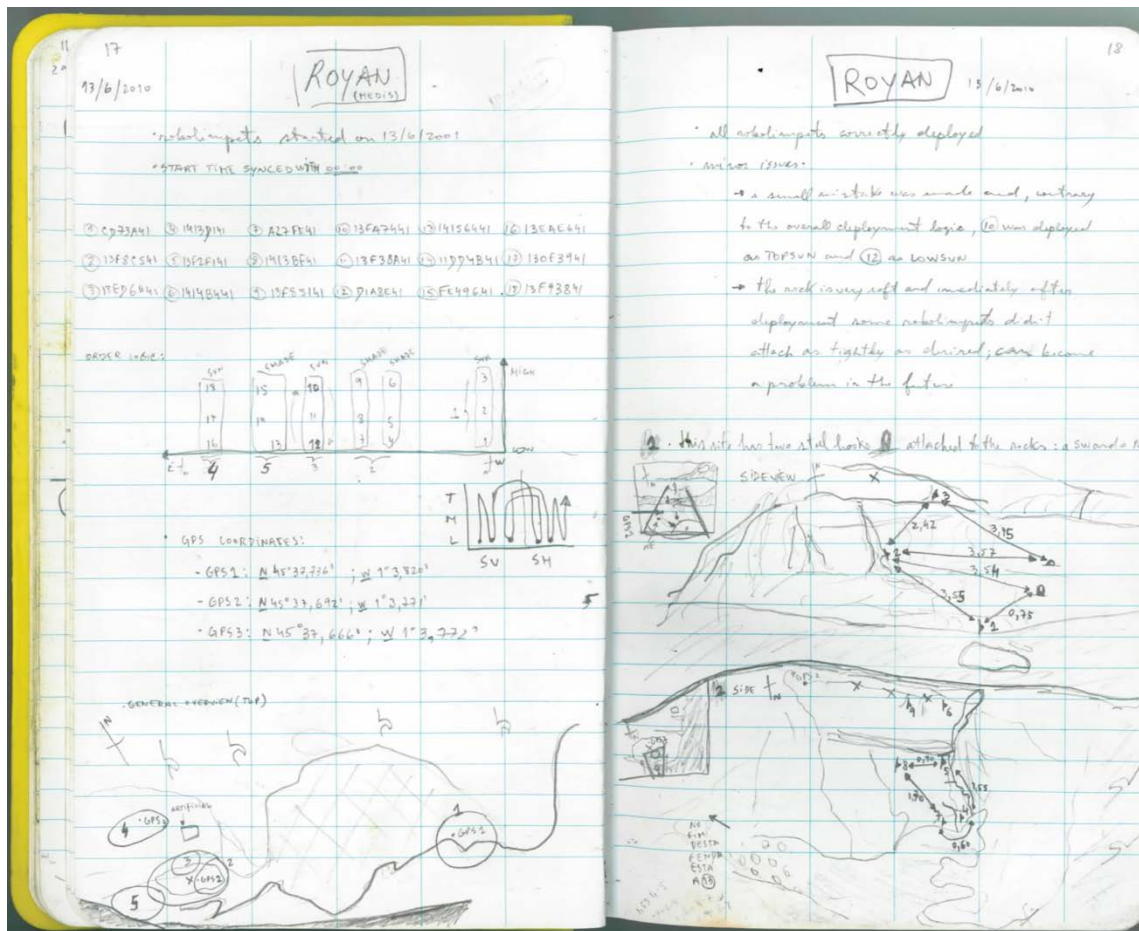 17
13/6/2010
ROYAN
(MEDIS)
• robolimpets started on 13/6/2001
• START TIME SYNCED WITH 00:00
① CD73A41 ④ 1413D141 ⑦ A27FE41 ⑩ 13FA7441 ⑬ 14156441 ⑯ 13EAE641
② 13F8C541 ⑤ 13F2F141 ⑧ 1413BF41 ⑪ 13F38A41 ⑭ 11DD4B41 ⑰ 130F3941
⑥ 1414B441 ⑨ 13F55141 ⑫ D1A8E41 ⑮ FE49641 ⑱ 13F93841
ORDER LOGIC:
SUN SHADE SUN SHADE SHADE SUN
HIGH
18 15 10 9 6 3
17 14 11 8 5 2 1
16 13 12 7 4 1
LOW
E W
4 5 3 2
T
M
L
SU SH
• GPS COORDINATES:
- GPS1: N 45°37,736' ; W 1°3,820'
- GPS2: N 45°37,692' ; W 1°3,771'
- GPS3: N 45°37,666' ; W 1°3,772'
5
• GENERAL OVERVIEW (TOP)
N
ARTIFICIAL
1
GPS1
4 • GPS3
3 2
X • GPS2
5
18
ROYAN
15/6/2010
• all robolimpets correctly deployed
• minor issues:
→ a small mistake was made and, contrary
to the overall deployment logic, ⑩ was deployed
as TOPSUN and ⑫ as LOWSUN
→ the rock is very soft and immediately after
deployment some robolimpets didn't
attach as tightly as desired; can become
a problem in the future
1. this site has two steel hooks attached to the rocks:
SIDEVIEW N
X
3
2,42
3,15
2
3,57
3,54
3,55
0,75
1
2 SIDE N
GPS2
X X X
9 6
8 0,90 5
1,90
1,55
7 4
0,60
NO
FIM
DESTA
FENDA
ESTA
A ⑬